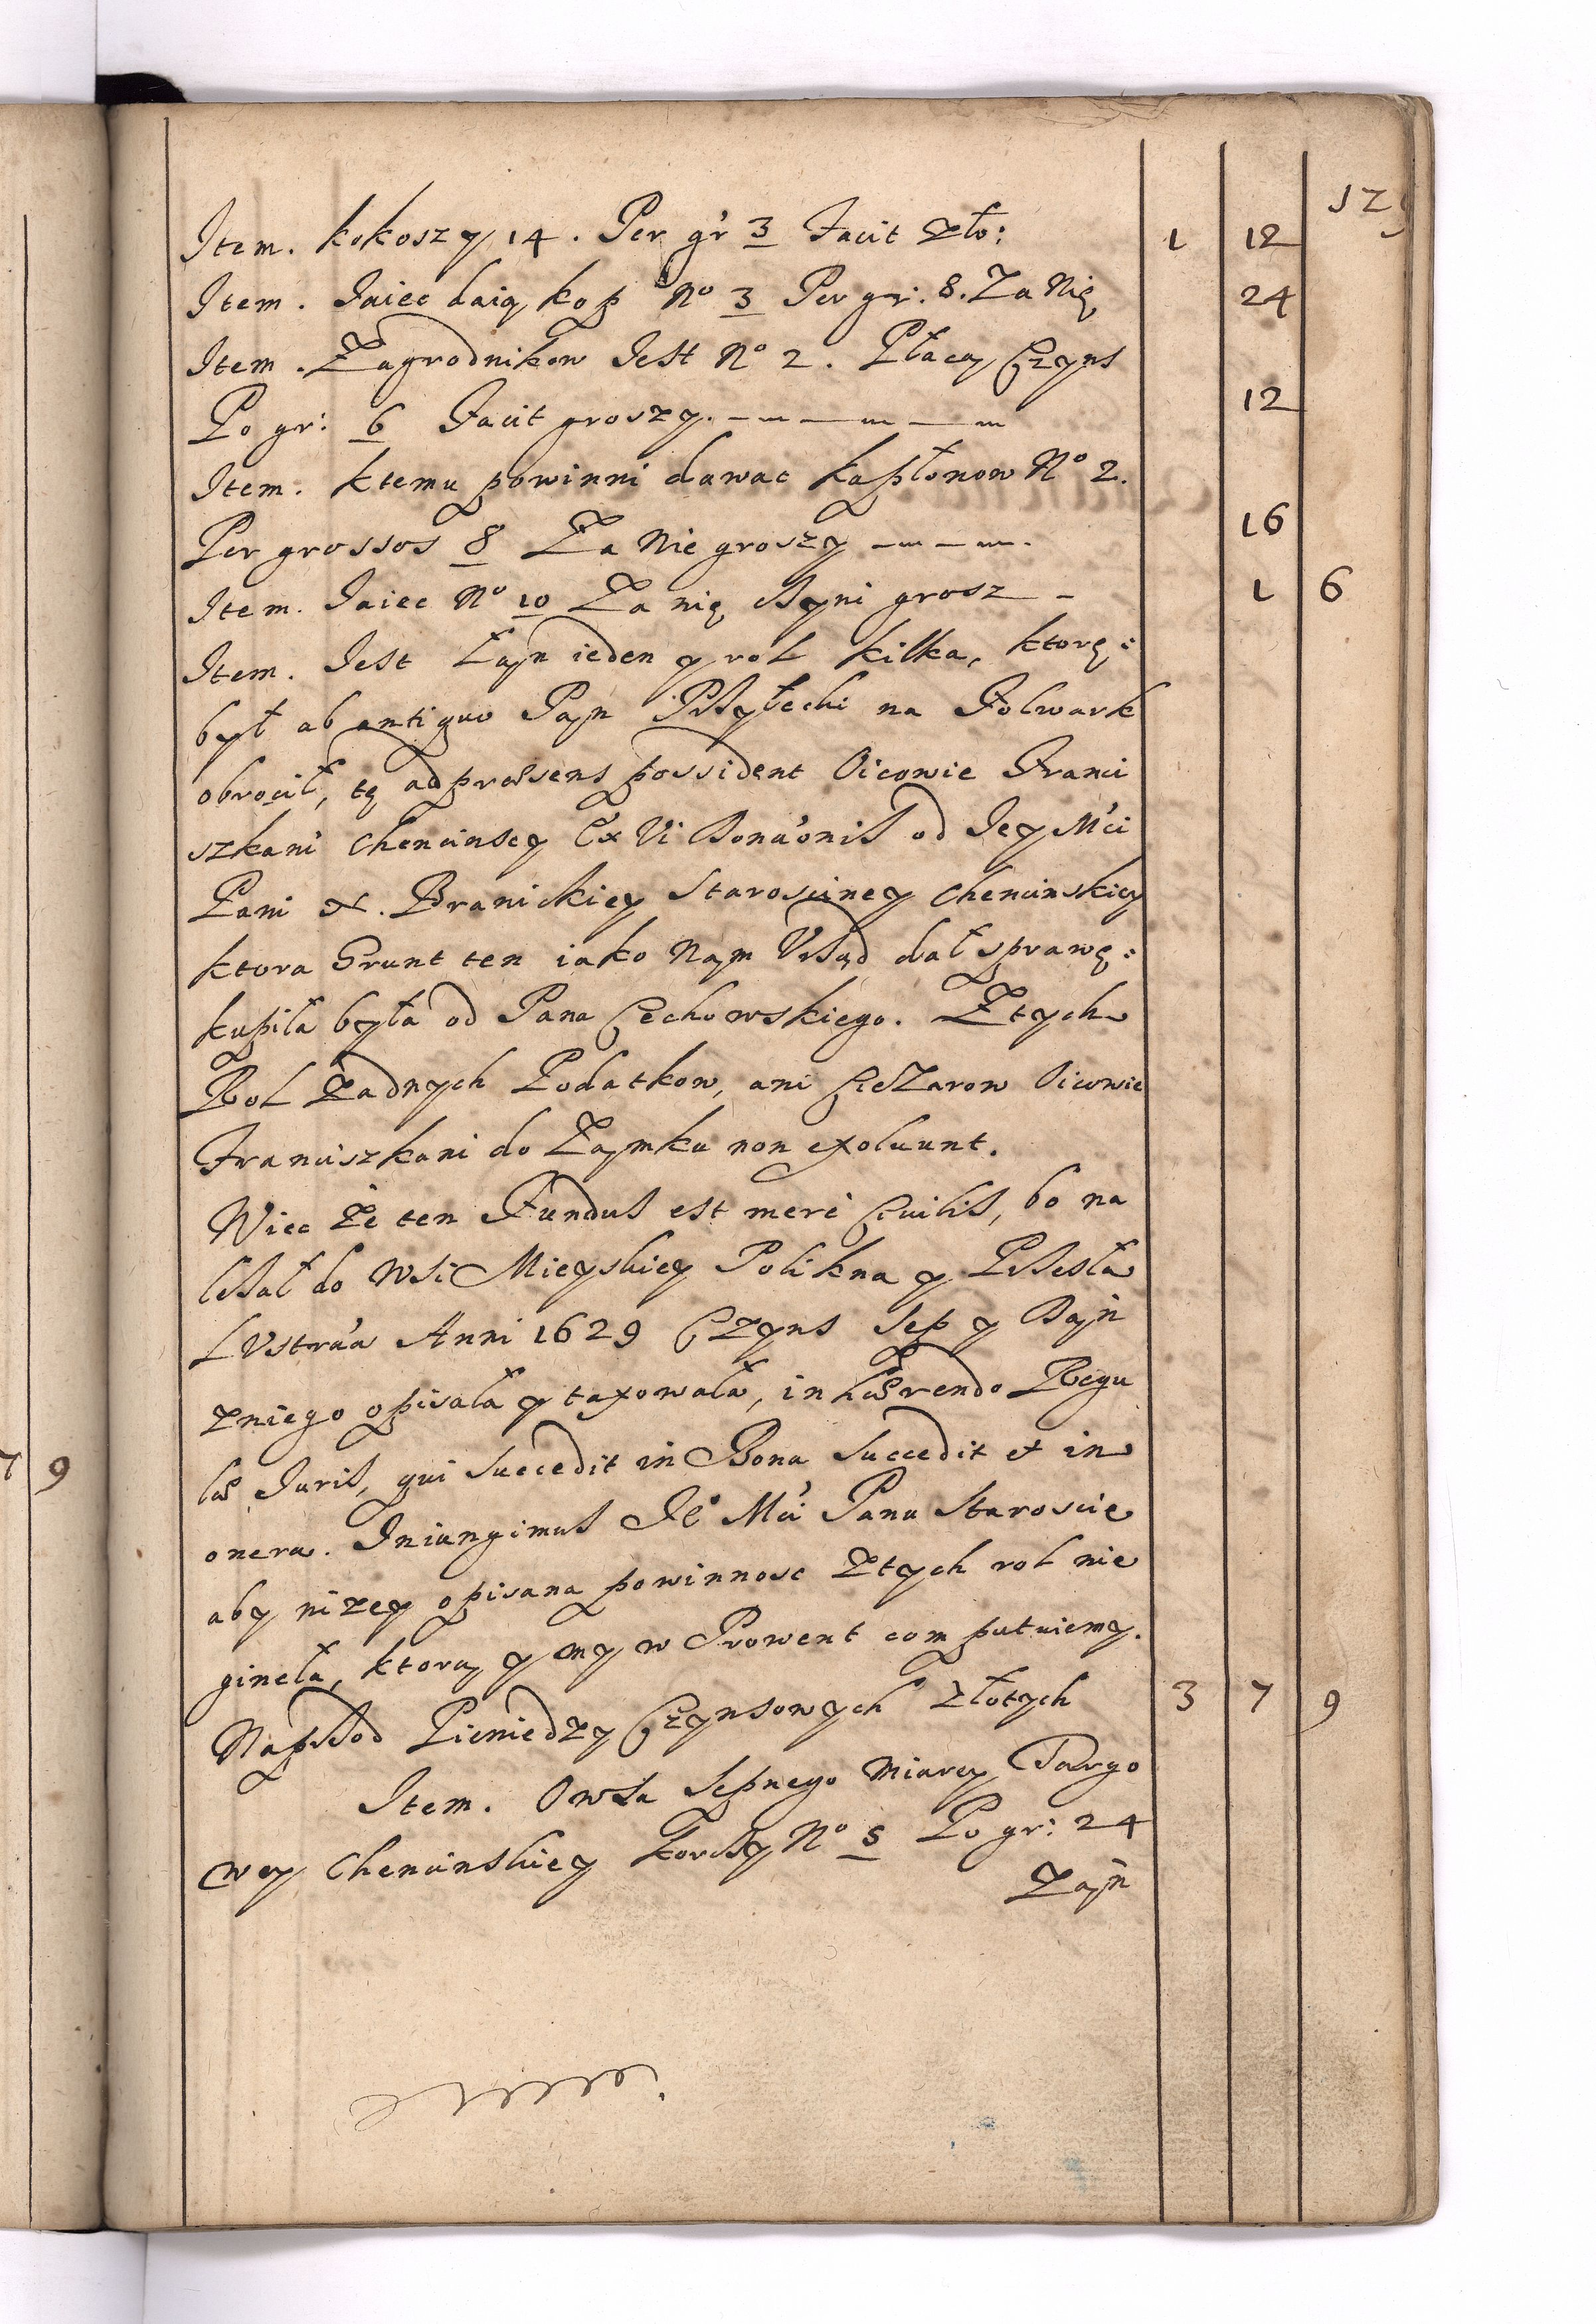 Item. kokoszy 14. Per gr 3 Facit zło: 1 12
Item. Jaiec daią kop No 3 Per gr: 8. Za Nię 24
Item. Zagrodnikow Jest No 2. Płacą Czyns
Po gr: 6 Facit groszy. 12
Item. ktemu powinni dawac kapłonow No 2.
Per grossos 8 Za Nie groszy 16
Item. Jaiec No 10 Za nię Czyni grosz 1 6
Item. Jest Łan ieden y rol kilka, ktorę:
był ab antiquo Pan Przyłecki na Folwark
obrocił, tę ad præsens possident Oicowie Franci
szkani Chencinscy Ex Vi Dona'onis od Jey Mći
Pani N. Branickiey Starosciney Chencinskiey
ktora Grunt ten iako Nam Vrząd dał sprawę:
kupiła była od Pana Czechowskiego. Z tych
Rol Zadnych Podatkow, ani Ciezarow Oicowie
Franciszkani do Zamku non exoluunt.
Wiec że ten Fundus est merè Ciuilis, bo na
lezał do Wsi Mieyskiey Polikna y Przeszła
LVstra'a Anni 1629 Czyns Sep y Dań
zniego opisała y taxowała, inhærendo Regu
læ Juris, qui Succedit in Bona Succedit et in
onera. Iniungimus Je° Mći Panu Staroscie
aby nizey opisana powinnosc Ztych rol nie
gineła, ktorą y my w Prowent computuiemy.
Naprzod Pieniedzy Czynsowych Złotych 3 7 9
Item. Owsa Sepnego Miary Targo
wey Chencinskiey Korczy No 5 Po gr: 24
Zań
7 9